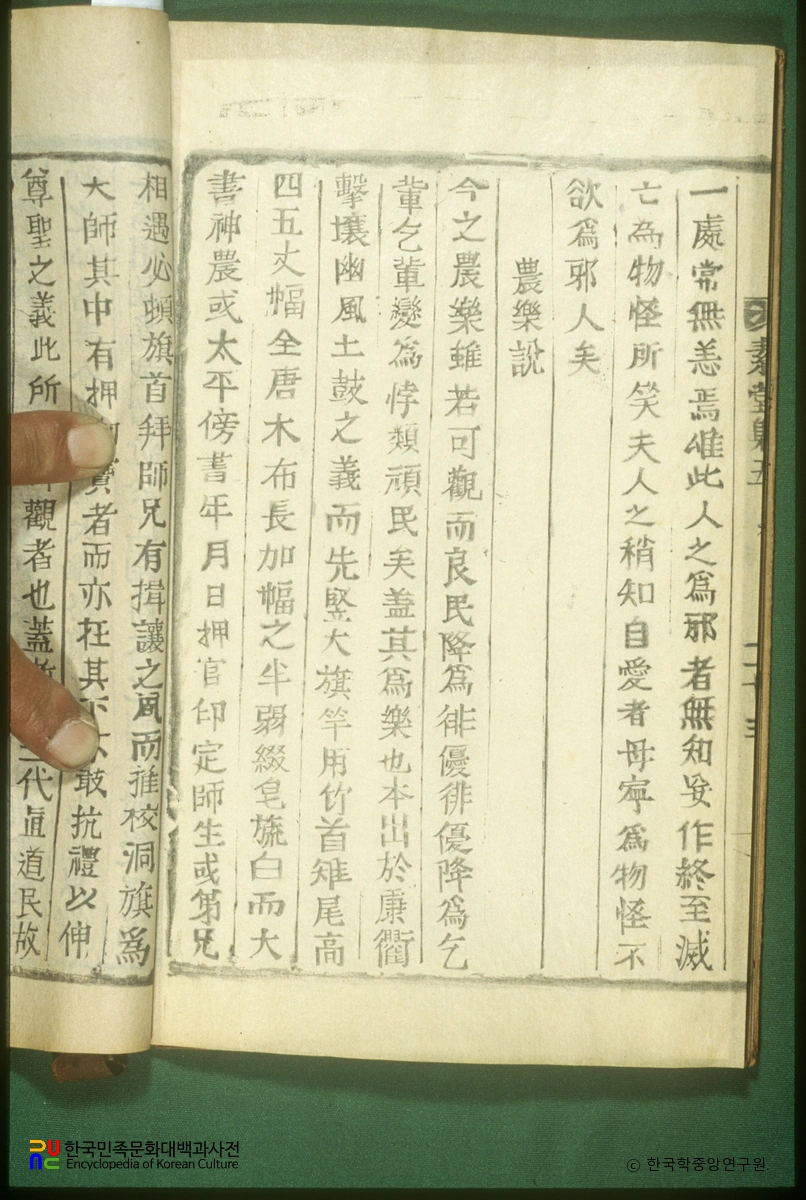 一處常無恙焉惟此人之爲邪者無知妄作終至滅
亡為物怪所笑夫人之稍知自愛者毋寧爲物怪不
欲爲邪人矣
農樂說
今之農樂雖若可觀而良民降爲徘優徘優降爲乞
軰乞軰變爲悖類頑民矣盖其爲樂也本出於康衢
擊壤豳風土鼓之義而先竪大旗竿用竹首雉尾高
四五丈幅全唐木布長加幅之半弱綴皂旒白而大
書神農或太平傍書年月日押官印定師生或第兄
相遇必頓旗首拜師兄有揖讓之風而推校洞旗爲
大師其中有押者而亦在其下敢抗禮以伸
尊聖之義此所觀者也蓋代直道民故
한국민족문화대백과사전
Encyclopedia of Korean Culture
ⓒ 한국학중앙연구원